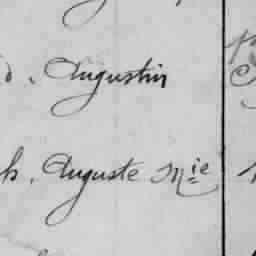 d. Augustin
h. Auguste Mie